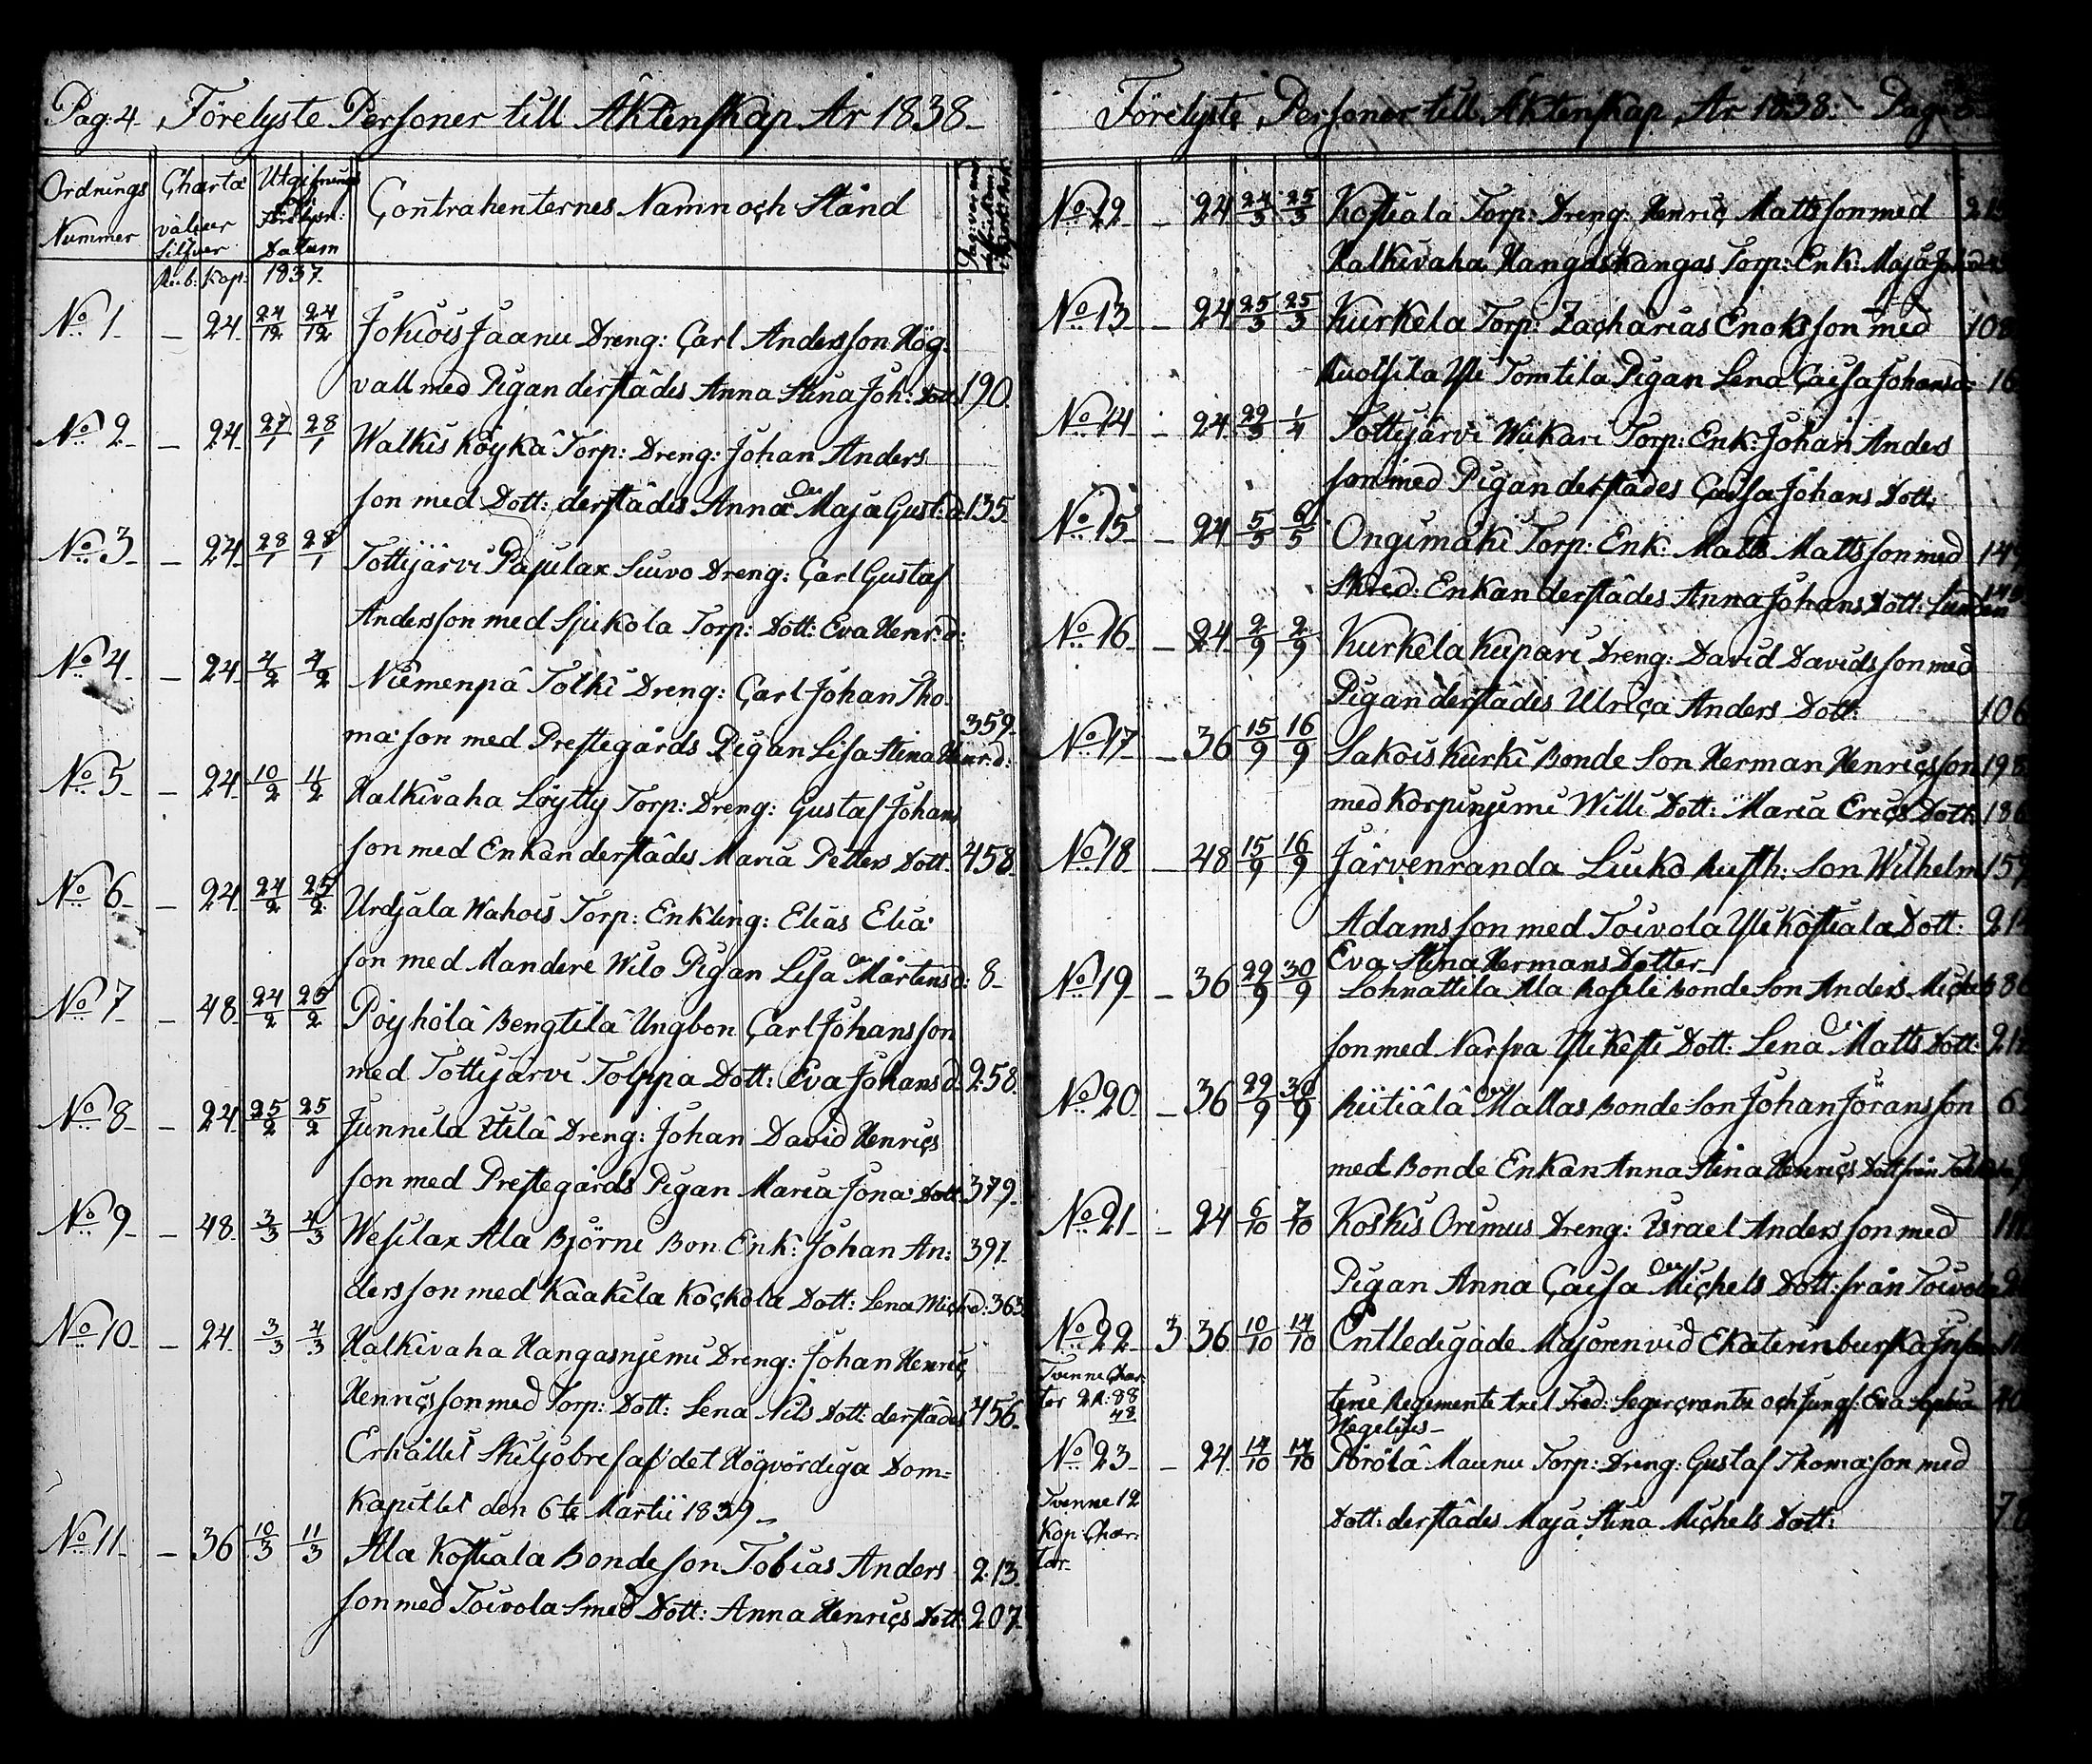 Pag: 4. Förelyste Personer till Äktenskap År 1838.
Ordnings Nummer
Charta välver Silfver
Utgifnings och Förelysn: Datum
Contrahenternes Namn och Stånd
Ru.b: Kop: 1837.
No 1. – 24. 24/12 24/12 Jokiois Jaanu Dreng: Carl Andersson Hög-
vall med Pigan derstädes Anna Stina Joh: Dott. 190.
No 2. – 24. 27/1 28/1 Walkis Köykä Torp: Dreng: Johan Anders
son med Dott: derstädes Anna Maja Gust: d: 135.
No 3. – 24. 28/1 28/1 Tottijärvi Pajulax Suvo Dreng: Carl Gustaf
Andersson med Sjukola Torp: Dott: Eva Henr: d:
No 4. – 24. 4/2 4/2 Niemenpä Tolki Dreng: Carl Johan Tho
ma:son med Prestegårds Pigan Lisa Stina Henr: d: 359.
No 5. – 24. 10/2 11/2 Halkivaha Löytty Torp: Dreng: Gustaf Johans
son med Enkan derstädes Maria Petters Dott: 458.
No 6. – 24. 24/2 25/2 Urdjala Wahois Torp: Enkling: Elias Elia:
son med Mandere Wilo Pigan Lisa Mårtens d: 8.
No 7. – 48. 24/2 25/2 Pöyhölä Bengtilä Ungbon Carl Johansson
med Tottijärvi Tolppa Dott: Eva Johans d: 258.
No 8. – 24. 25/2 25/2 Junnila Ylilä Dreng: Johan David Henrics
son med Prestegårds Pigan Maria Jona: Dott: 379.
No 9. – 48. 3/3 4/3 Wesilax Ala Björni Bon. Enk: Johan An: 391.
dersson med Kaakila Kockola Dott: Lena Mich: d: 363.
No 10. – 24. 3/3 4/3 Halkivaha Hangasnjemi Dreng: Johan Henric
Henricsson med Torp: Dott: Lena Nils Dott: derstädes 456.
Erhållit Skiljobref af det Högvördiga Dom=
Kapitlet den 6te Martii 1839.
No 11. – 36 10/3 11/3 Ala Kostiala Bonde son Tobias Anders 213.
son med Toivola Smed Dott: Anna Henrics Dott: 207.
Förelyste Personer till Äktenskap, År 1838. Pag: 5
No 22. – 24 24/3 25/3 Kostiala Torp: Dreng: Henric Mattsson med
Halkivaha Hangaskangas Torp: Enk: Maja
No 13. – 24 25/3 25/3 Kurkela Torp: Zacharias Enoksson med
Kuolsila Yli Tomtila Pigan Lena Caisa Johans d:
No 14. – 24. 29/3 1/4 Tottijärvi Wükari Torp: Enk: Johan Anders
son med Pigan derstädes Caisa Johans Dott:
No 15. – 24. 5/5 6/5 Ongimäki Torp: Enk: Matts Mattsson med
Skred: Enkan derstädes Anna Johans Dott:
No 16. – 24. 2/9 2/9 Kurkela Kupari Dreng: David Davidsson med
Pigan derstädes Ulrica Anders Dott: 106
No 17. – 36 15/9 16/9 Sakois Kurki Bonde Son Herman Henricsson
med Korpinjemi Willi Dott: Maria Erics Dott:
No 18. – 48 15/9 16/9 Järvenranda Liuko Rusth: Son Wilhelm
Adamsson med Toivola Yli Kostiala Dott:
Eva Stina Hermans Dotter
No 19. – 36 29/9 30/9 Lohnattila Ala Rosili Bonde Son Anders Michels
son med Narva Yli Kesti Dott: Lena Matts Dott:
No 20. – 36 29/9 30/9 Riitiälä Mallas Bonde Son Johan Göransson
med Bonde Enkan Anna Stina Henrics Dott från
No 21. – 24 6/10 7/10 Koskis Orimus Dreng: Israel Andersson med
Pigan Anna Caisa Michels Dott: från Toivola
No 22. 3 36 10/10 14/10 Entledigade Majoren vid Ekaterinburska Infan
Tvenne Char
tor 2R: 88
48
terie Regemente Axel Fred: Segercrantz och Jungf. Eva Sophia
Wegelius
No 23. – 24 14/10 14/10 Pörölä Maunu Torp: Dreng: Gustaf Thoma:son med
Tvenne 12
Kop: Char:
tor.
Dott: derstädes Maja Stina Michels Dott: